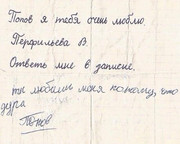 Попов я тебя очень люблю
Перфильева В.
Ответь мне в записке.
ты любишь меня потому, что
дура
Попов